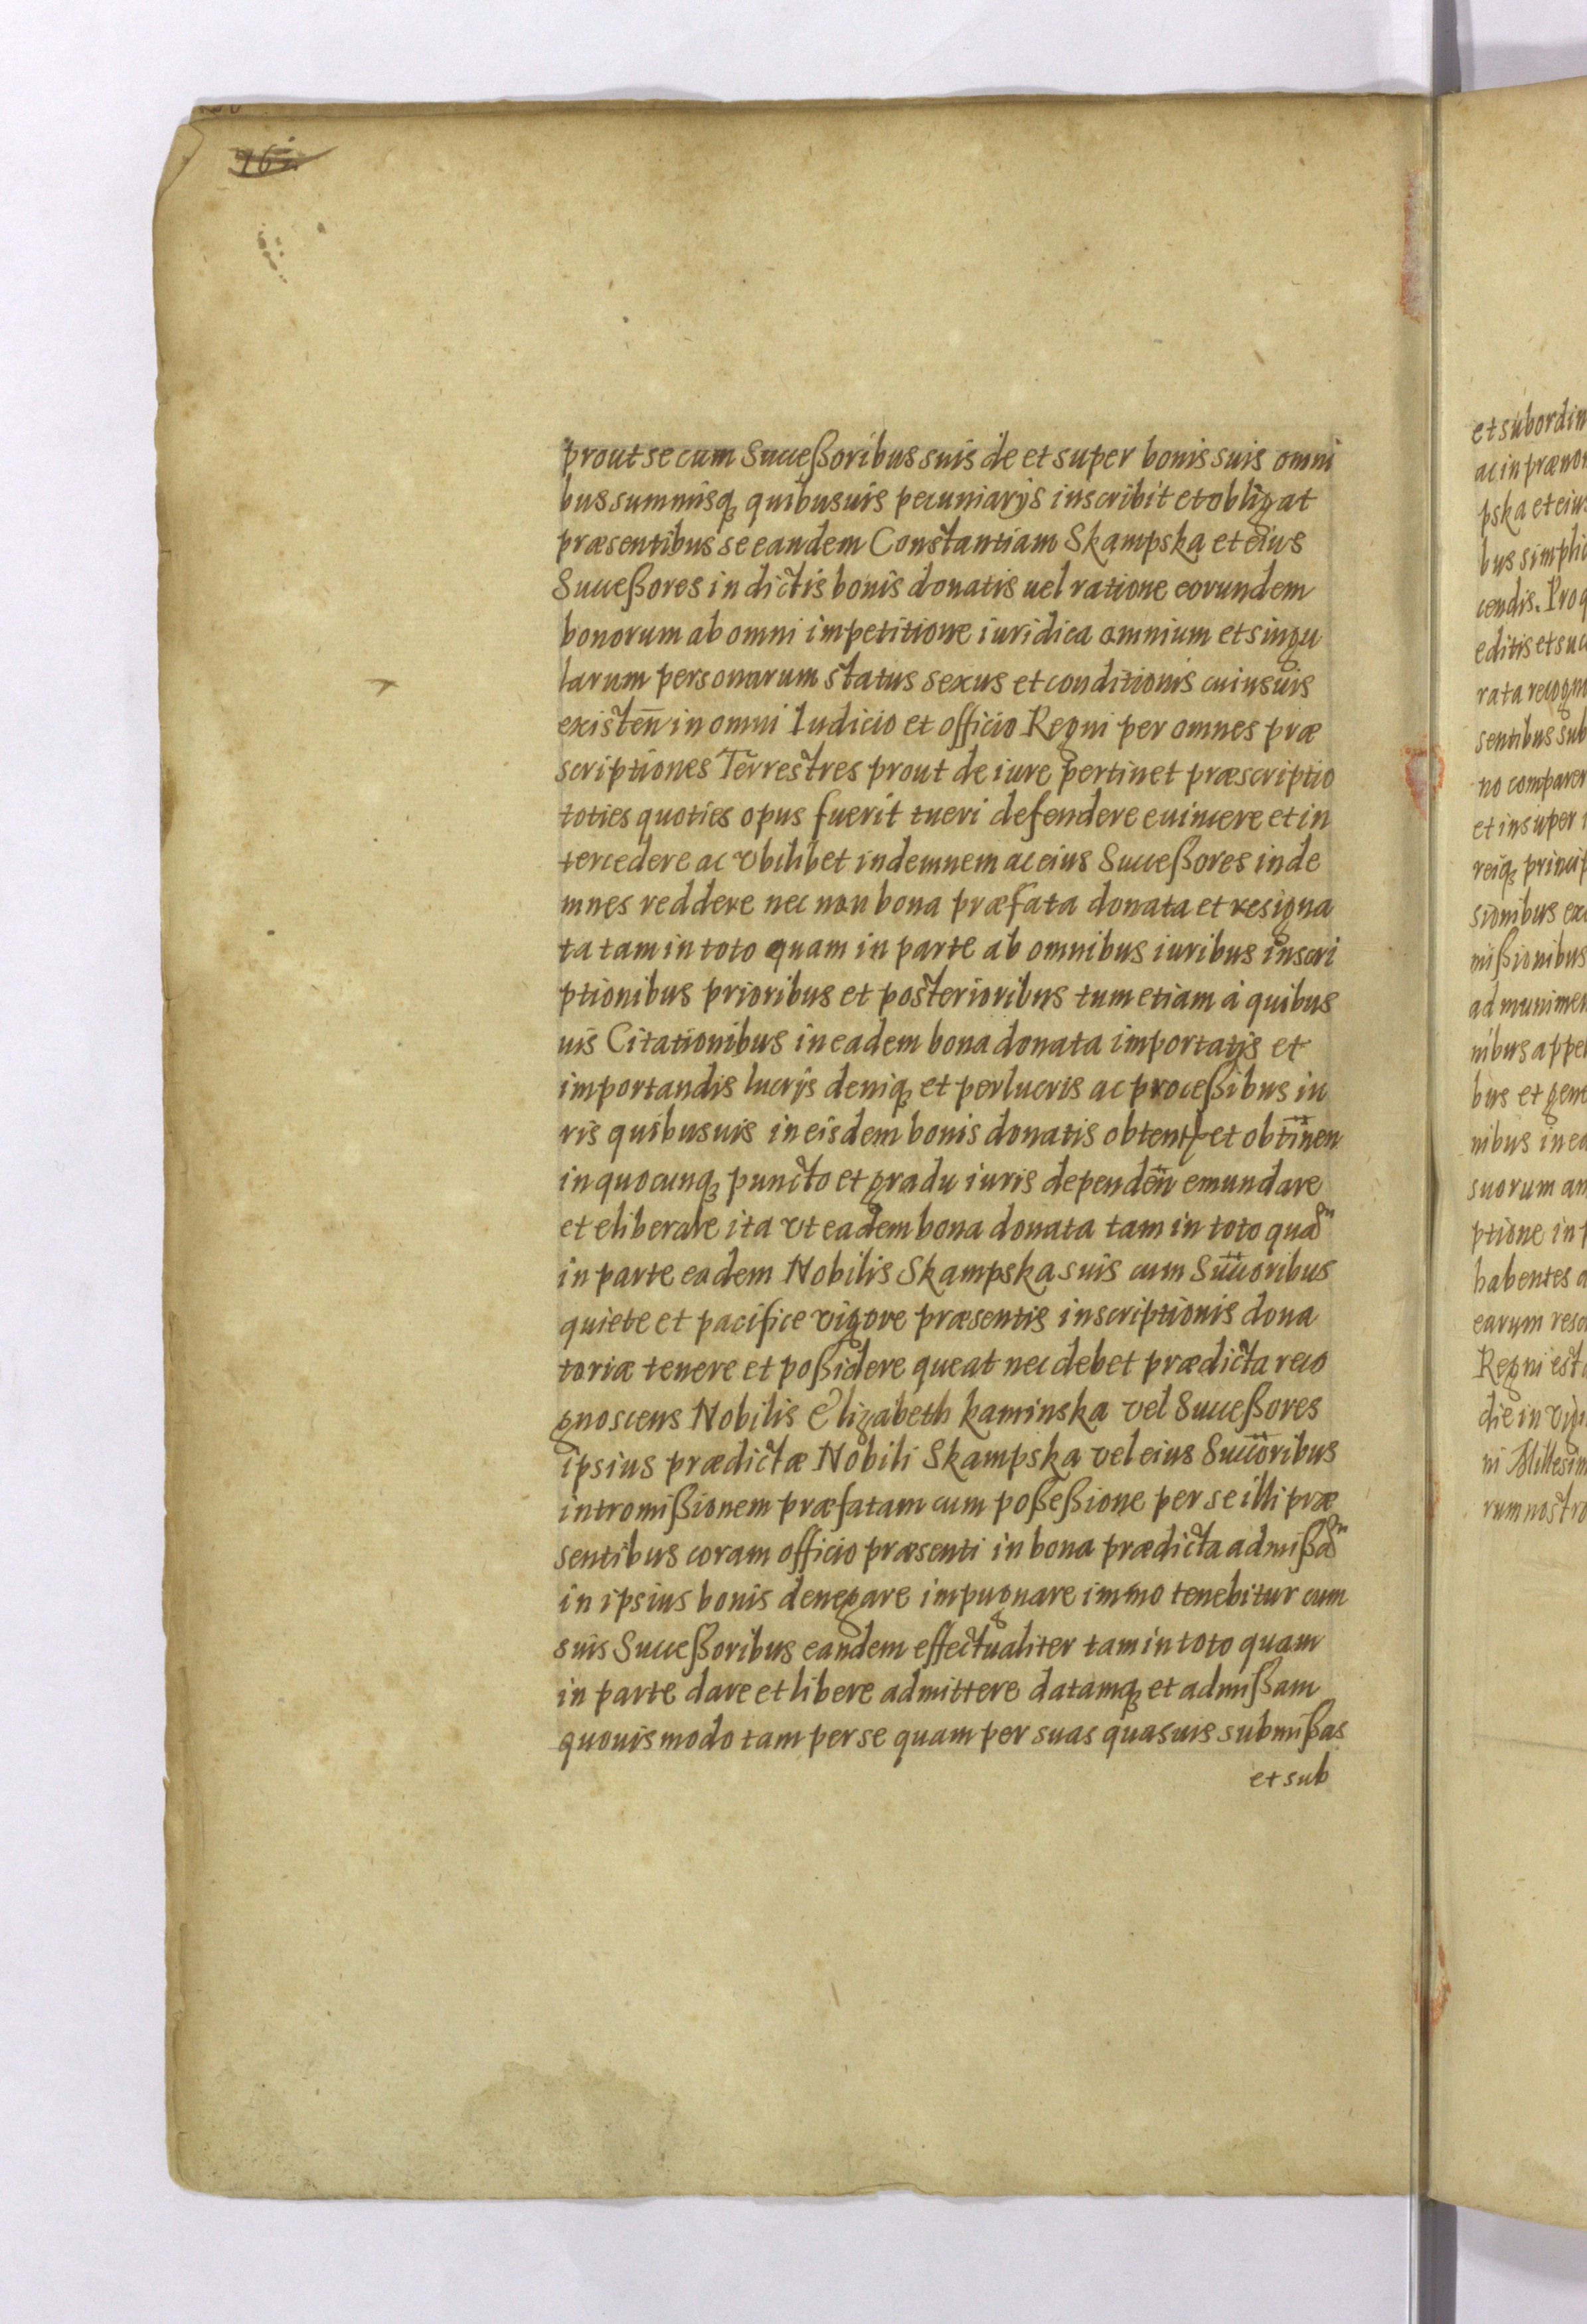 prout se cum Succeßoribus suis de et super bonis suis omni
bus summisq quibusuis pecuniarijs inscribit et obligat
præsentibus se eandem Constantiam Skampska et eius
Succeßores in dictis bonis donatis uel ratione eorundem
bonorum ab omni impetitione iuridica omnium et singu
larum personarum status sexus et conditionis cuiusuis
existen̄ in omni Iudicio et officio Regni per omnes præ
scriptiones Terrestres prout de iure pertinet præscriptio
toties quoties opus fuerit tueri defendere euincere et in
tercedere ac vbilibet indemnem ac eius Succeßores inde
mnes reddere nec non bona præfata donata et resigna
ta tam in toto quam in parte ab omnibus iuribus inscri
ptionibus prioribus et posterioribus tum etiam á quibus
uis Citationibus in eadem bona donata importatis et
importandis lucrijs deniq et perlucris ac proceßibus iu
ris quibusuis in eisdem bonis donatis obtent et obtinen̄
in quocunq puncto et gradu iuris dependen̄ emundare
et eliberare ita vt eadem bona donata tam in toto quam
in parte eadem Nobilis Skampska suis cum Succoribus
quiete et pacifice vigore præsentis inscriptionis dona
toriæ tenere et poßidere queat nec debet prædicta reco
gnoscens Nobilis Elizabeth kaminska vel Succeßores
ipsius prædictæ Nobili Skampska vel eius Succoribus
intromißionem præfatam cum poßeßione per se illi præ
sentibus coram officio præsenti in bona prædicta admißam
in ipsius bonis denegare impugnare immo tenebitur cum
suis Succeßoribus eandem effectualiter tam in toto quam
in parte dare et libere admittere datamq et admißam
quouis modo tam per se quam per suas quasuis submißas
et sub
et subordin
ac in præno
pska et eius
bus simplic
cendis. Pro q
editis et suc
rata recogno
sentibus sub
no comparen
et insuper i
reiq princip
sionibus exe
mißionibus
ad munimen
nibus appel
bus et gene
nibus in ea
suorum am
ptione in p
habentes a
earum reso
Regni est
die in vigi
ni Millesim
rum nostro